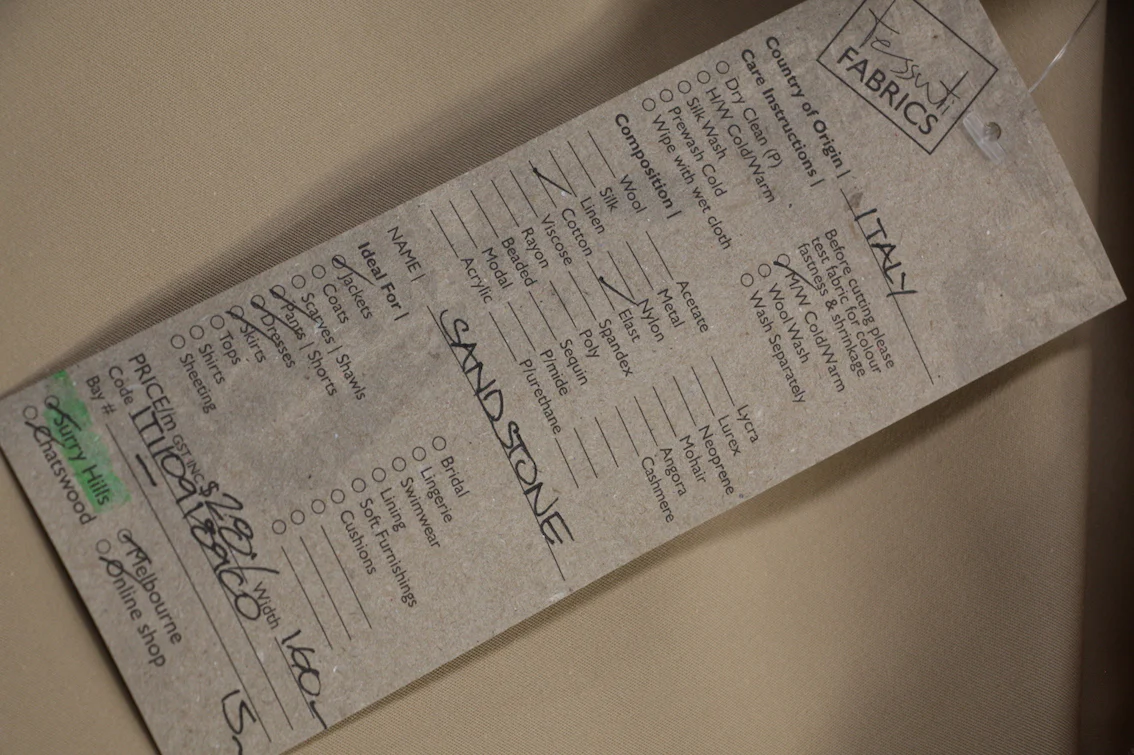 tessuti
FABRICS
Country of Origin | ITALY
Care Instructions |
Dry Clean (P)
H/W Cold/Warm
Silk Wash
Prewash Cold
Wipe with wet cloth
Before cutting please
test fabric for colour
fastness & shrinkage
M/W Cold/Warm
Wool Wash
Wash Separately
Composition |
Wool
Silk
Linen
Cotton
Viscose
Rayon
Beaded
Modal
Acrylic
Acetate
Metal
Nylon
Elast
Spandex
Poly
Sequin
P/mide
P/urethane
Lycra
Lurex
Neoprene
Mohair
Angora
Cashmere
NAME | SANDSTONE
Ideal For |
Jackets
Coats
Scarves | Shawls
Pants | Shorts
Dresses
Skirts
Tops
Shirts
Sheeting
Bridal
Lingerie
Swimwear
Lining
Soft Furnishings
Cushions
PRICE/m GST INC Width 160
Code
Bay # 15
Surry Hills
Chatswood
Melbourne
Online shop